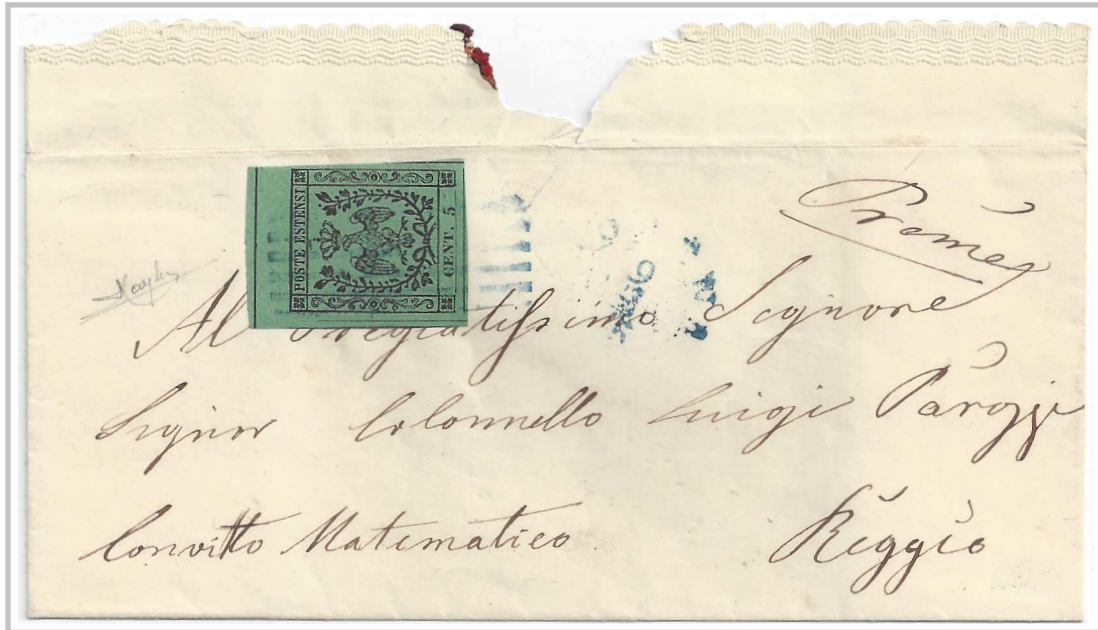 POSTE ESTENSI
CENT. 5
Preme
Al Pregiatissimo Signore
Signor Colonnello Luigi
Convitto Matematico
Reggio